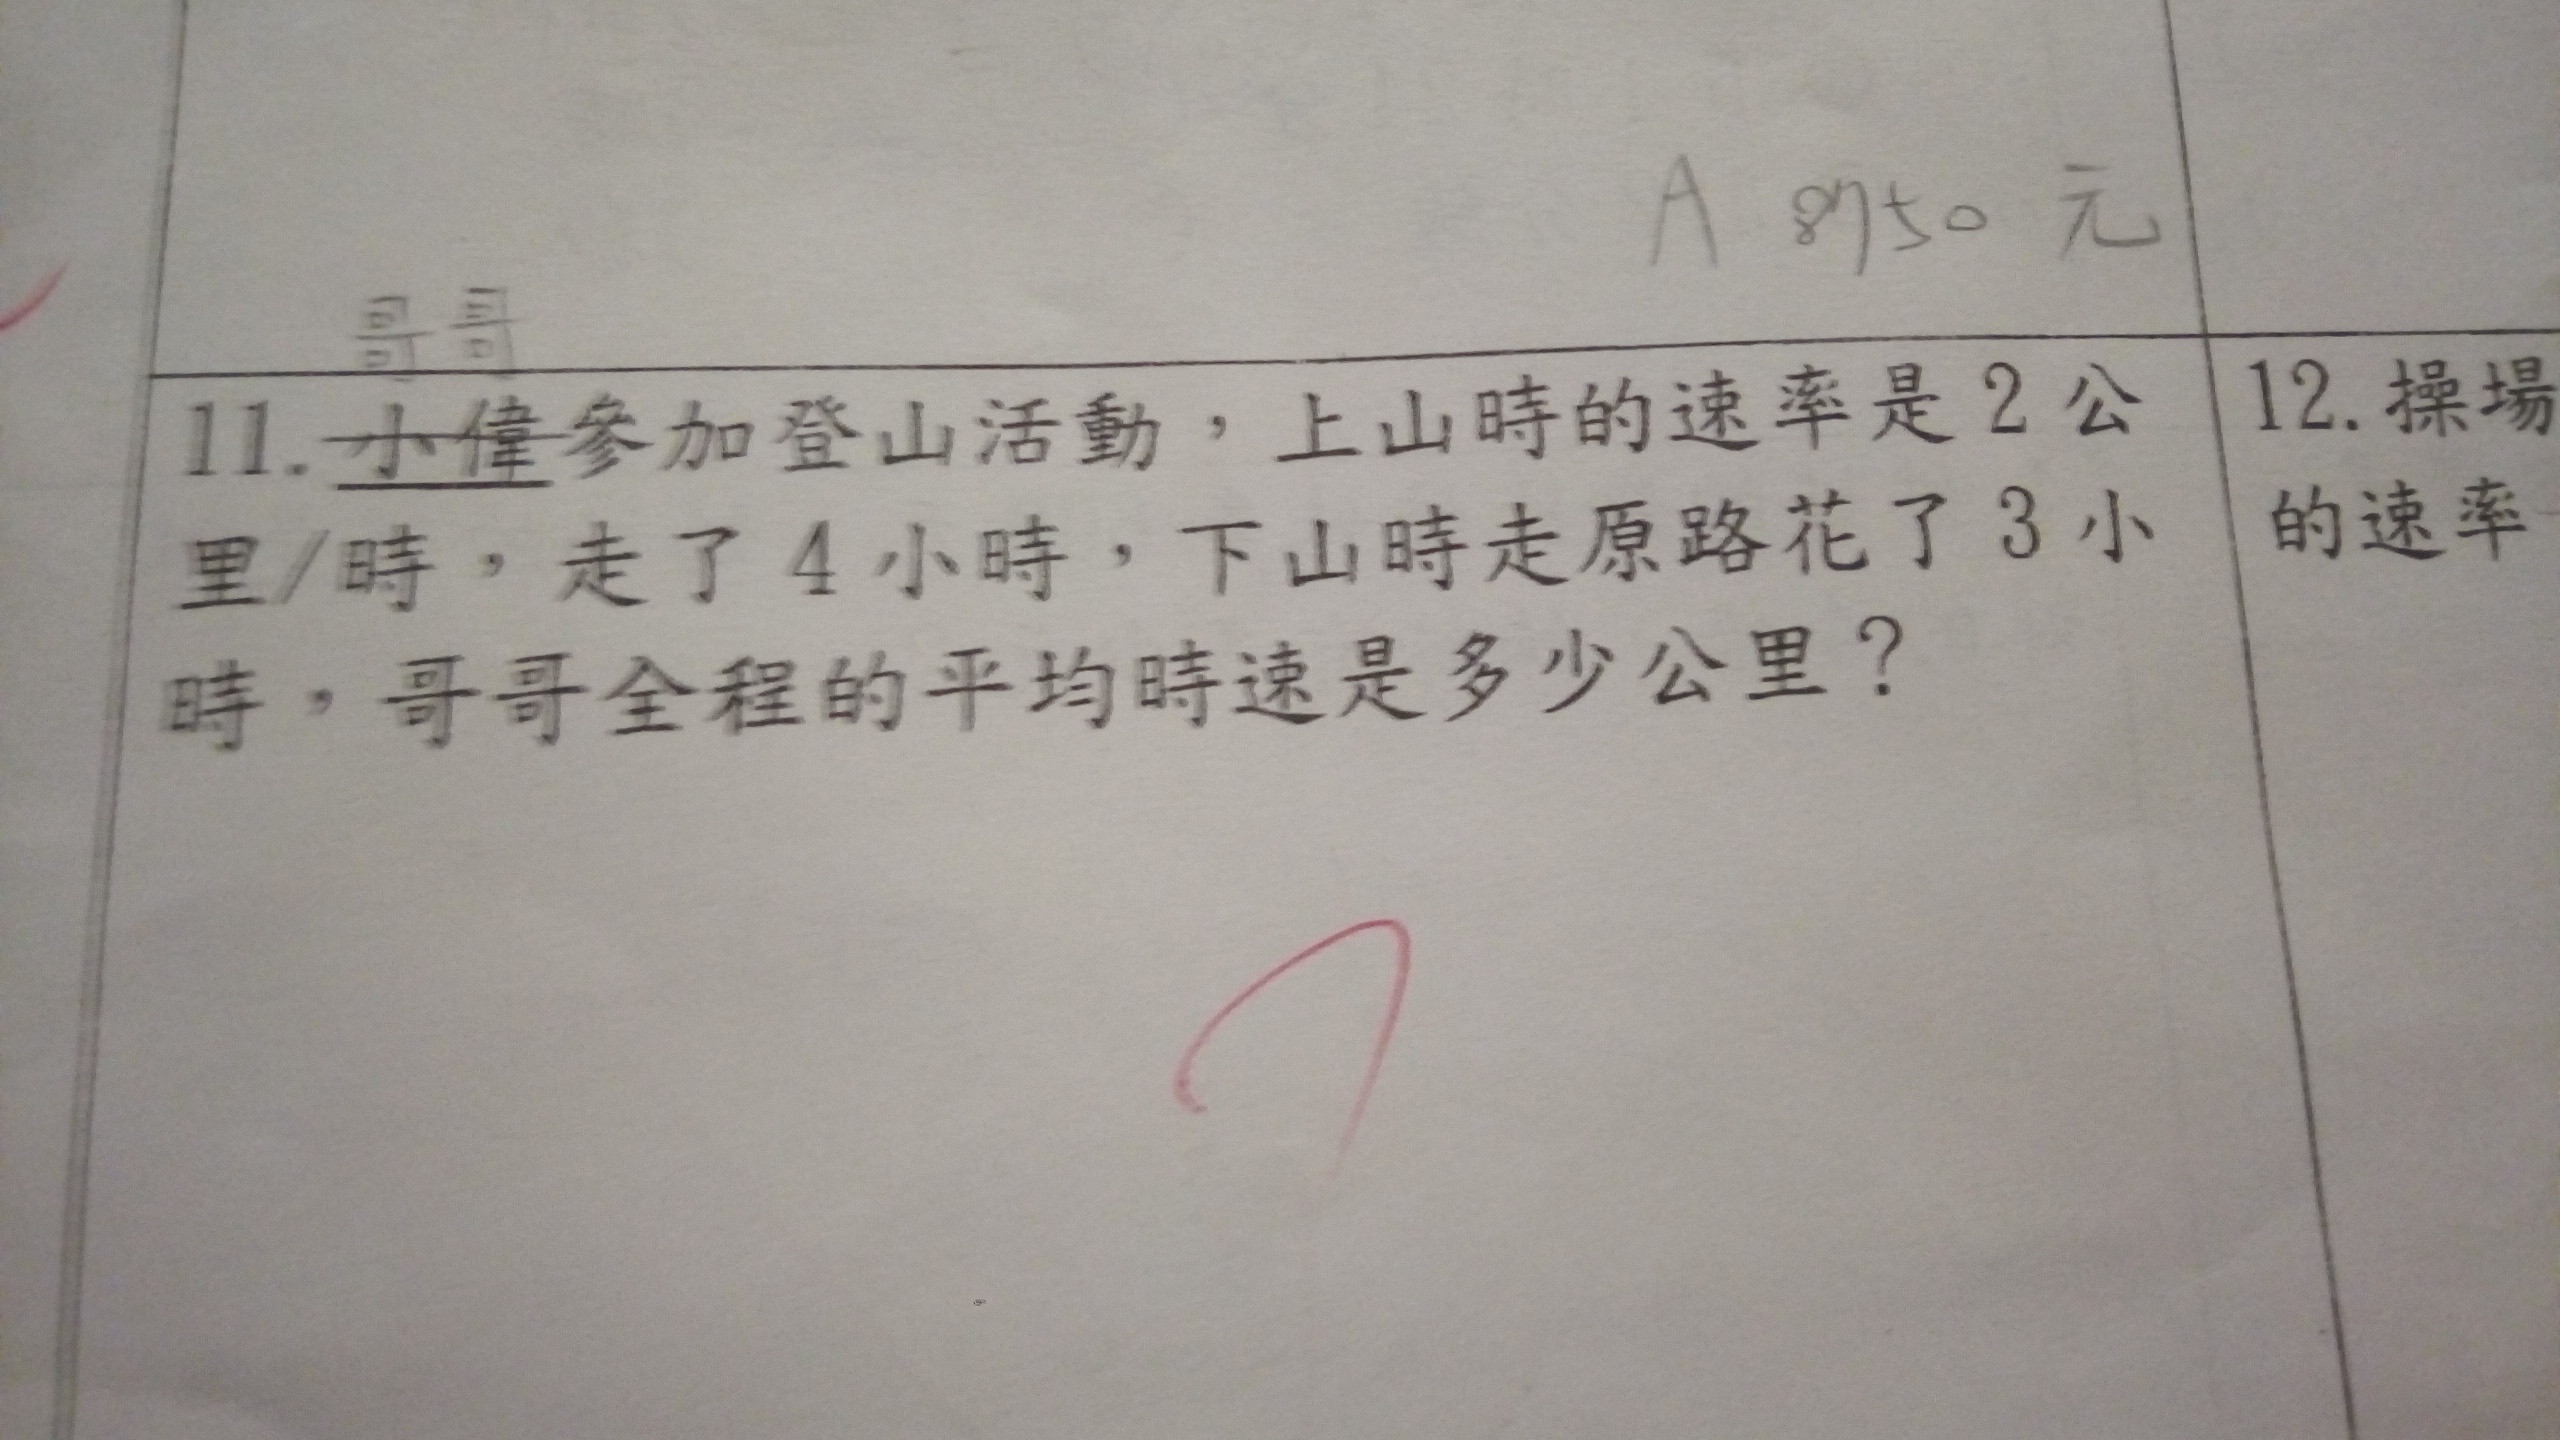 A 8750 元
哥哥
11. 小偉參加登山活動，上山時的速率是2公
里/時，走了4小時，下山時走原路花了3小
時，哥哥全程的平均時速是多少公里？
12. 操場
的速率